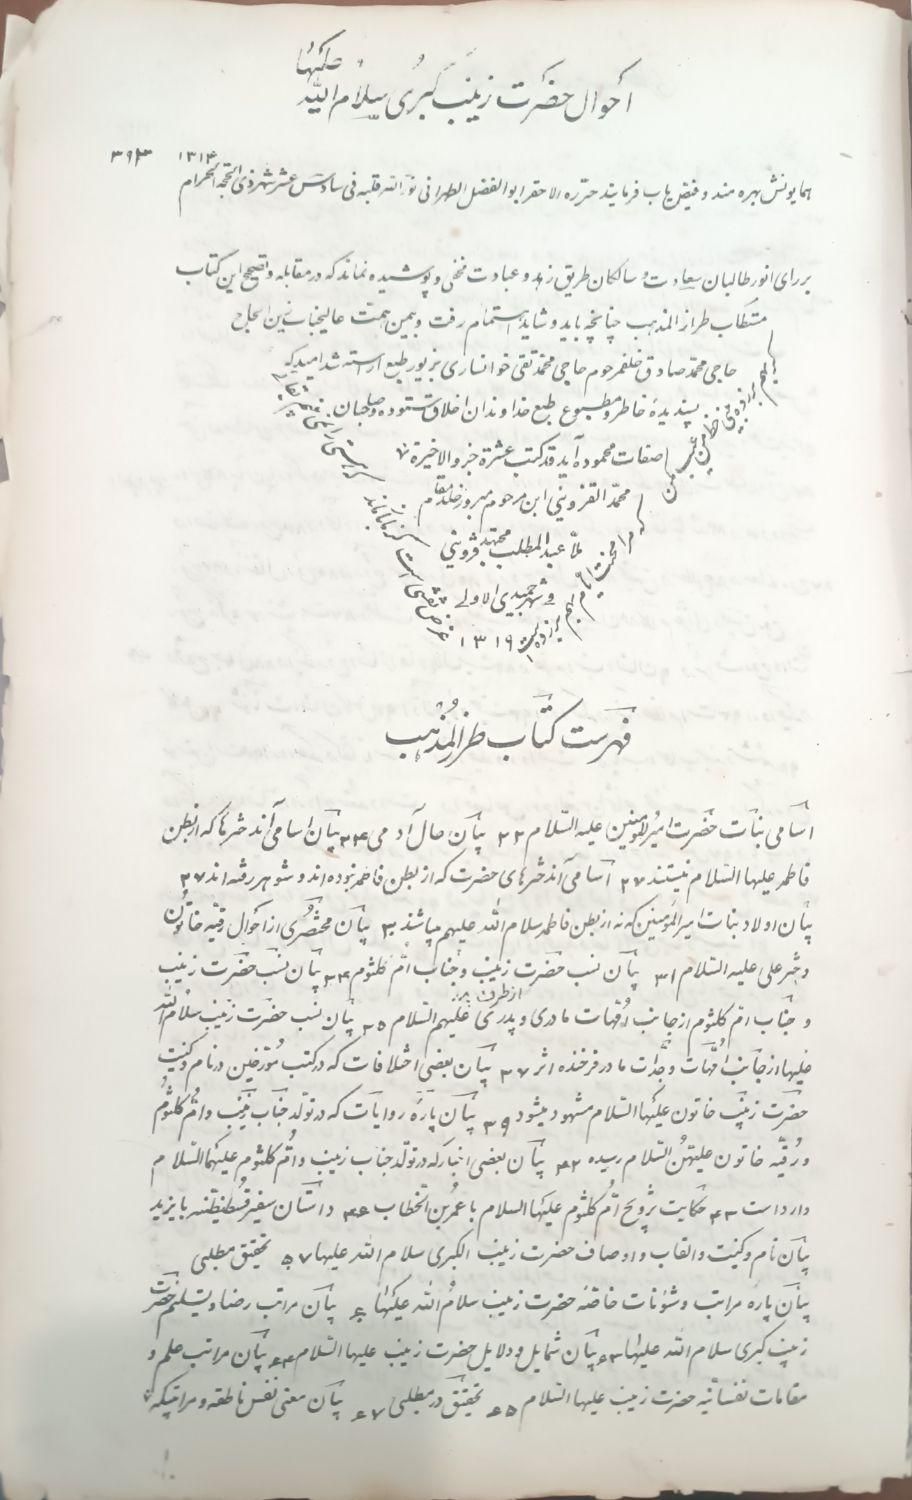 احوال حضرت زینب کبری سلام الله علیها
۳۹۳
همایونش بهره مند و فیض یاب فرمایند حرره الاحقر ابوالفضل الطهرانی نورالله قلبه فی سادس عشر شهر ذی الحجة الحرام ۱۳۱۴
بر رای انور طالبان سعادت و سالکان طریق زهد و عبادت مخفی و پوشیده نماند که در مقابله و تصحیح این کتاب
مستطاب طراز المذهب چنانچه باید و شاید اهتمام رفت و بیمن همت عالیجناب زین الحاج
حاجی محمد صادق خلف مرحوم حاجی محمد تقی خوانساری بزیور طبع اراسته شد امید که
پسندیدهٔ خاطر و مطبوع طبع خداوندان اخلاق ستوده و صاحبان
صفات محموده آید قد کتب عشرة جز و الاخیرة ۷
محمد القزوینی ابن مرحوم مبرور خلد مقام
ملا عبد المطلب مجتهد قزوینی
فی شهر جمیدی الاولی
۱۳۱۹
غرض نقشی است کز ما باز ماند
که هستی را نمی بینم بقائی
فهرست کتاب طراز المذهب
اسامی بنات حضرت امیرالمؤمنین علیه السلام ۲۲ بیان حال آدمی ۲۴ بیان اسامی آندخترها که از بطن
فاطمه علیها السلام نیستند ۲۷ اسامی آندخترهای حضرت که از بطن فاطمه نبوده اند و شوهر رفته اند ۲۷
بیان اولاد بنات امیرالمؤمنین که نه از بطن فاطمه سلام الله علیهم میباشند ۳۰ بیان مختصری از احوال رقیه خاتون
دختر علی علیه السلام ۳۱ بیان نسب حضرت زینب و جناب ام کلثوم ۳۴ بیان نسب حضرت زینب
و جناب ام کلثوم از جانب امهات مادری و پدری از طرف علیهم السلام ۳۵ بیان نسب حضرت زینب سلام الله
علیها از جانب امهات و جدات مادر فرخنده اثر ۳۷ بیان بعضی اختلافات که در کتب مورخین در نام و کنیت
حضرت زینب خاتون علیها السلام مشهود میشود ۳۹ بیان پارهٔ روایات که در تولد جناب زینب و ام کلثوم
و رقیه خاتون علیهن السلام رسیده ۴۲ بیان بعضی اخبار که در تولد جناب زینب و ام کلثوم علیهما السلام
وارد است ۴۳ حکایت تزویج ام کلثوم علیها السلام با عمر بن الخطاب ۴۶ داستان سفیر قسطنطنیه با یزید
بیان نام و کنیت و القاب و اوصاف حضرت زینب الکبری سلام الله علیها ۵۷ تحقیق مطلبی
بیان پارهٔ مراتب و شئونات خاصه حضرت زینب سلام الله علیها ۶۰ بیان مراتب رضا و تسلیم حضرت
زینب کبری سلام الله علیها ۶۳ بیان شمایل و دلایل حضرت زینب علیها السلام ۶۴ بیان مراتب علم و
مقامات نفسانیه حضرت زینب علیها السلام ۶۵ تحقیق در مطلبی ۶۷ بیان معنی نفس ناطقه و مراتبیکه